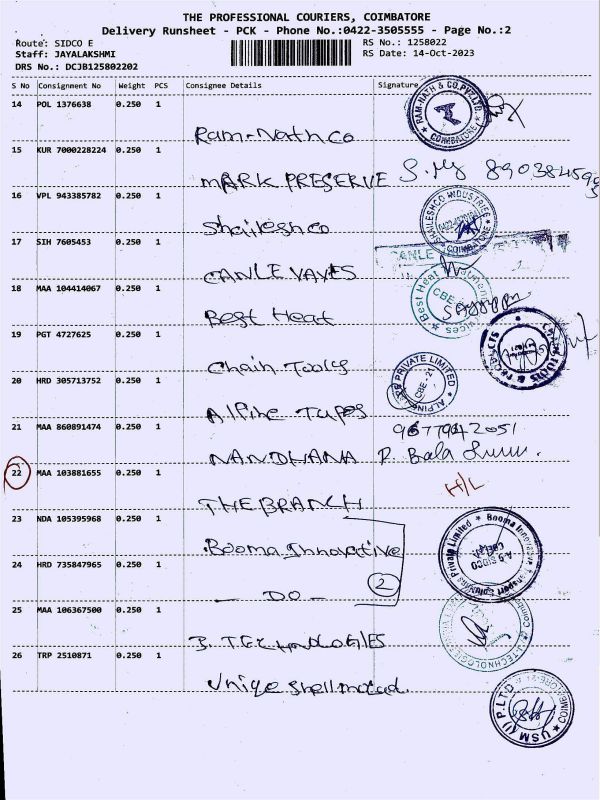 THE PROFESSIONAL COURIERS, COIMBATORE
Delivery Runsheet - PCK - Phone No.:0422-3505555 - Page No.:2
Route: SIDCO E
RS No.: 1258022
Staff: JAYALAKSHMI
RS Date: 14-Oct-2023
DRS No.: DCJB125802202
S No Consignment No Weight PCS Consignee Details Signature
14 POL 1376638 0.250 1
Ram-Nath Co
RAM-NATH & CO.PVT.LTD. COIMBATORE
15 KUR 7000228224 0.250 1
MARK PRESERVE
16 VPL 943385782 0.250 1
Shailesh co
SHAILESHCO INDUSTRIES COIMBATORE
17 SIH 7605453 0.250 1
CANLE VAVES
CANLE
18 MAA 104414067 0.250 1
Best Heat
Best Heat CBE
19 PGT 4727625 0.250 1
Chain Tools
20 HRD 305713752 0.250 1
Alpine Tapes
PRIVATE LIMITED CBE-21 ALPINE
21 MAA 860891474 0.250 1
NANDHANA
9677942051
R. Bala
22 MAA 103881655 0.250 1
THE BRANCH
H/L
23 NDA 105395968 0.250 1
Booma Innovative
Booma Innovative Transport Solutions Private Limited
24 HRD 735847965 0.250 1
- DO -
2
25 MAA 106367500 0.250 1
3. TECHNOLOGIES
26 TRP 2510871 0.250 1
Unique Shell mould
USM (I) P.LTD COIMBATORE-21